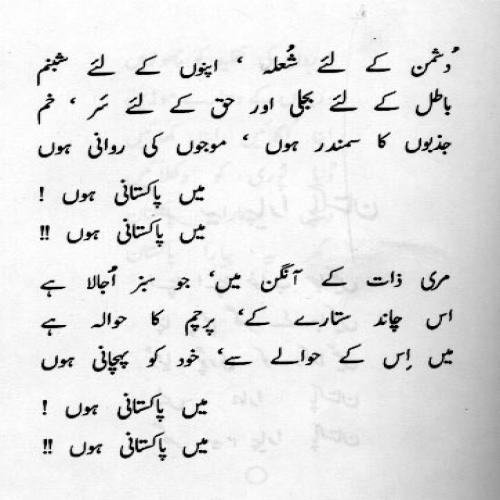 دُشمن کے لئے شُعلہ ، اپنوں کے لئے شبنم
باطل کے لئے بجلی اور حق کے لئے سَر ، خم
جذبوں کا سمندر ہوں ، موجوں کی روانی ہوں
میں پاکستانی ہوں !
میں پاکستانی ہوں !!
مری ذات کے آنگن میں، جو سبز اُجالا ہے
اس چاند ستارے کے، پرچم کا حوالہ ہے
میں اِس کے حوالے سے، خود کو پہچانی ہوں
میں پاکستانی ہوں !
میں پاکستانی ہوں !!